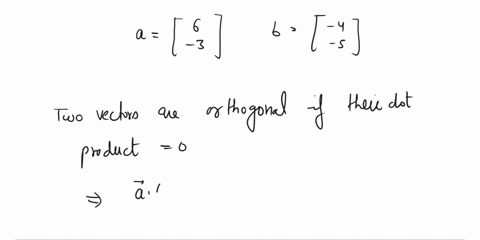 a = [ 6 -3 ] b = [ -4 -5 ]
Two vectors are orthogonal if their dot
product = 0
⇒ a⃗ .